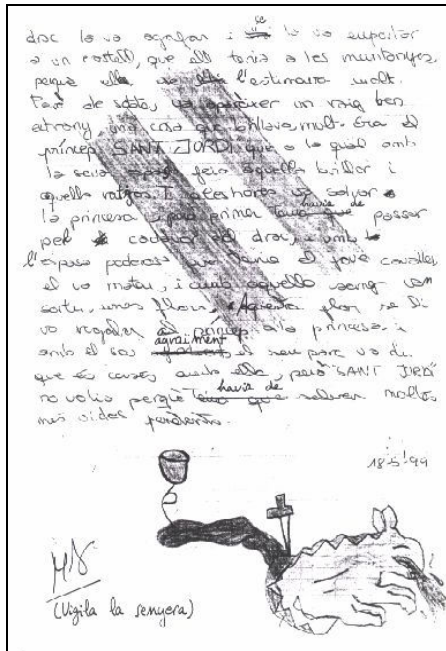 drac la va agafar i se la va emportar
a un castell, que ell tenia a les muntanyes,
perquè ell l'estimava molt.
Par de sobte, va aparèixer un raig ben
estrany una cosa que brillava molt. Era el
príncep SANT JORDI que a la qual amb
la seva espasa feia aquella brillor i
aquells rajos. Ti aleshores va salvar a
la princesa i però primer tenia que havia de passar
pel costat del drac, i amb
l'espasa poderosa que tenia el jove cavaller
el va matar, i amb aquella sang van
sortir, unes flors. Aquesta flor se li
va regalar al príncep a la princesa i
amb el seu agraiment el seu pare va dir
que es casés amb ella, però SANT JORDI
no volia perquè tenia que havia de salvar moltes
més vides
18-5-99
(Vigila la senyera)